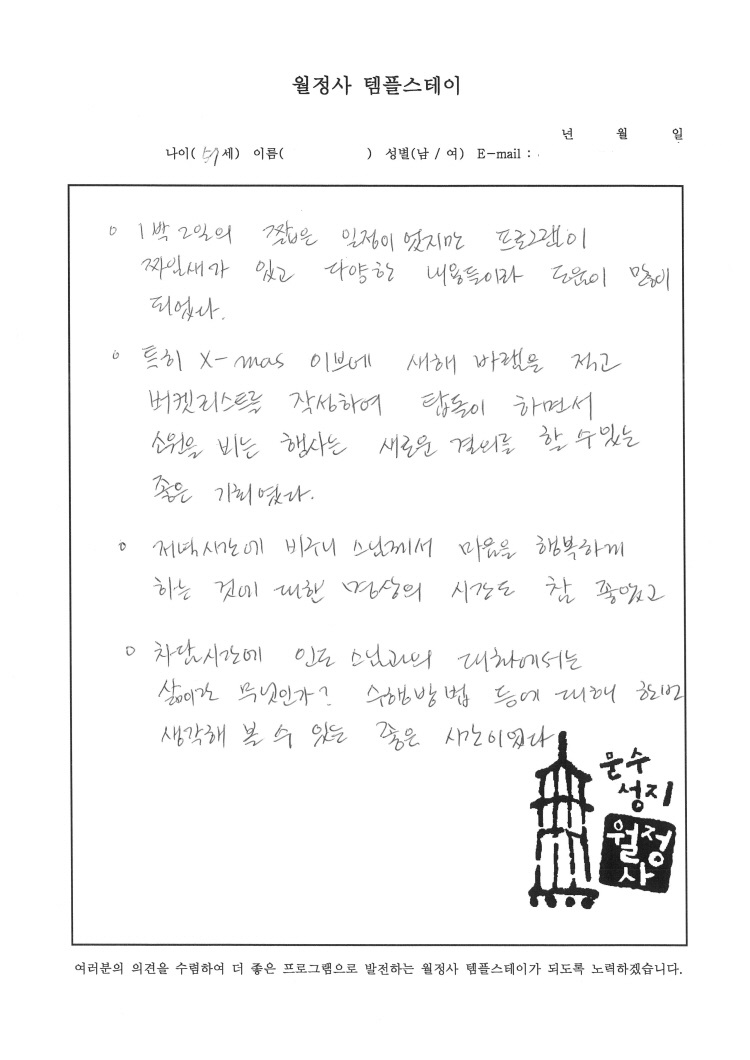 월정사 템플스테이
년 월 일
나이( 51세) 이름( ) 성별(남 / 여) E-mail :
o 1박 2일의 짧은 일정이었지만 프로그램이
짜임새가 있고 다양한 내용들이라 도움이 많이
되었다.
o 특히 X-mas 이브에 새해 바램을 적고
버켓리스트를 작성하여 탑돌이 하면서
소원을 비는 행사는 새로운 결의를 할 수 있는
좋은 기회였다.
o 저녁시간에 비구니 스님께서 마음을 행복하게
하는 것에 대한 명상의 시간도 참 좋았고
o 차담시간에 인도 스님과의 대화에서는
삶이란 무엇인가? 수행방법 등에 대해 한번
생각해 볼 수 있는 좋은 시간이었다
문수
성지
월정
사
여러분의 의견을 수렴하여 더 좋은 프로그램으로 발전하는 월정사 템플스테이가 되도록 노력하겠습니다.